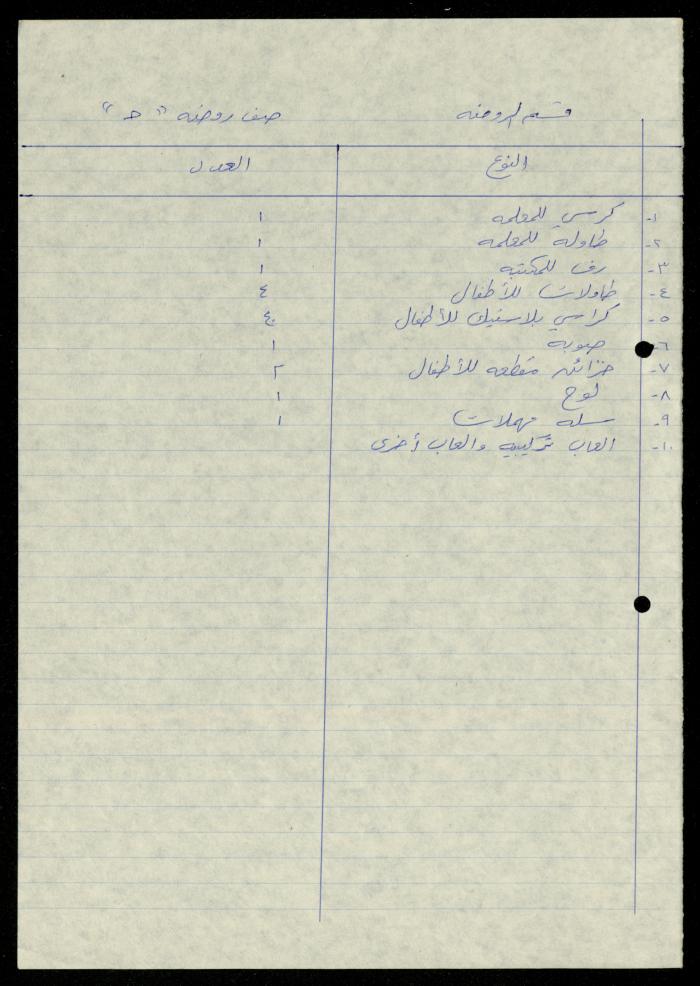 قسم الروضه صف روضه "حـ"
النوع العدد
١- كرسي للمعلمه ١
٢- طاولة للمعلمه ١
٣- رف للمكتبه ١
٤- طاولات للأطفال ٤
٥- كراسي بلاستيك للأطفال ٤٠
٦- صوبه ١
٧- خزائن مقطعه للأطفال ٢
٨- لوح ١
٩- سله مهملات ١
١٠- العاب تركيبيه والعاب أخرى